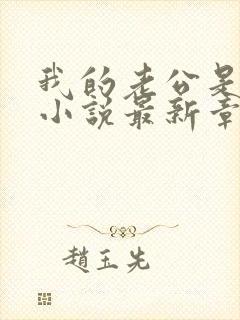 我的老公是
小说最新章
趙玉先